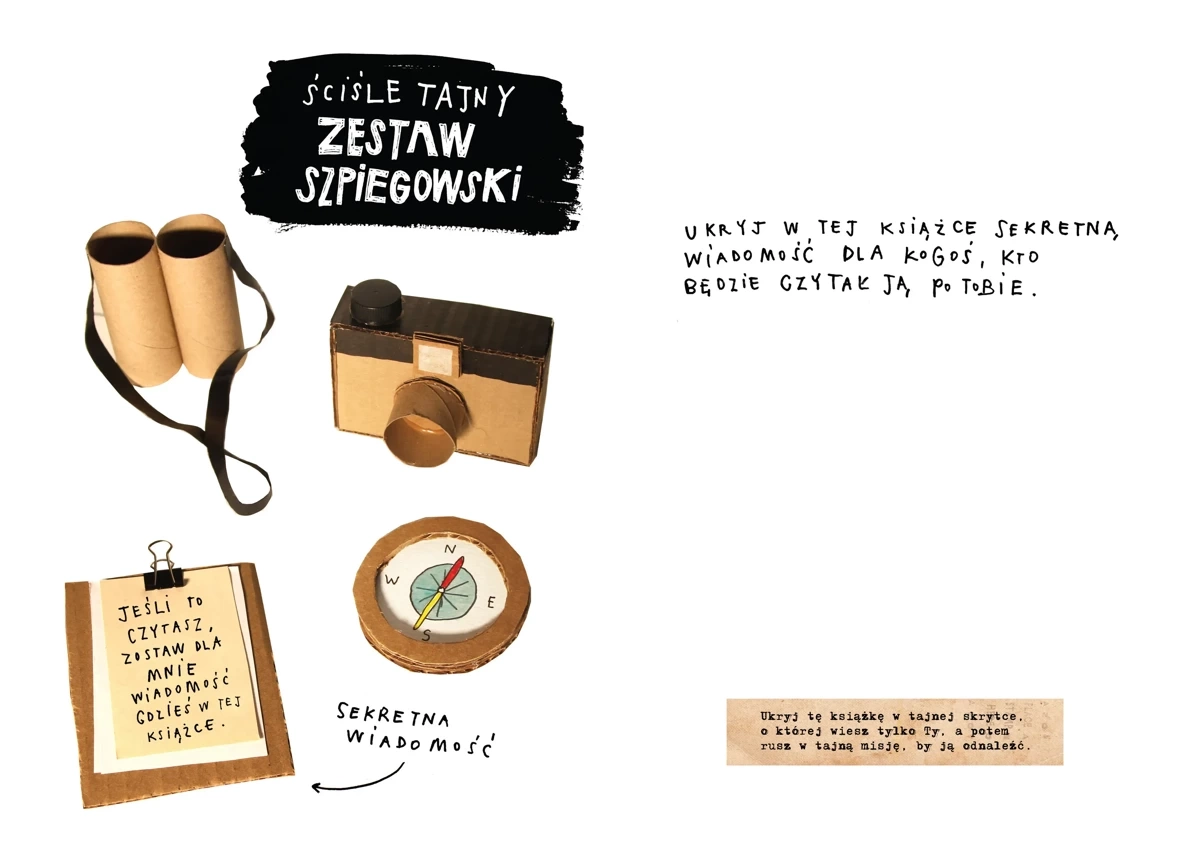 ŚCIŚLE TAJNY
ZESTAW
SZPIEGOWSKI
N
W
E
S
JEŚLI TO
CZYTASZ,
ZOSTAW DLA
MNIE
WIADOMOŚĆ
GDZIEŚ W TEJ
KSIĄŻCE.
SEKRETNA
WIADOMOŚĆ
UKRYJ W TEJ KSIĄŻCE SEKRETNĄ
WIADOMOŚĆ DLA KOGOŚ, KTO
BĘDZIE CZYTAŁ JĄ PO TOBIE.
Ukryj tę książkę w tajnej skrytce,
o której wiesz tylko Ty, a potem
rusz w tajną misję, by ją odnaleźć.